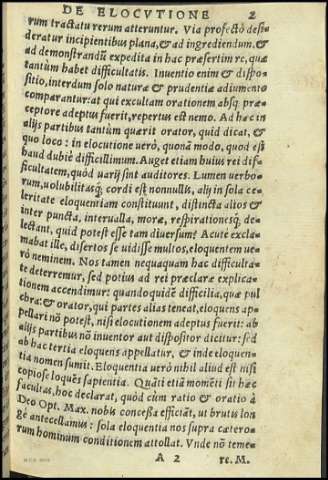 DE ELOCVTIONE 2
rum tractatu rerum atteruntur. Via profectò desi-
deratur incipientibus plana, & ad ingrediendum, &
ad demonstrandū expedita in hac præsertim re, quæ
tantùm habet difficultatis. Inuentio enim & dispo-
sitio, interdum solo naturæ & prudentiæ adiumento
comparantur: at qui excultam orationem absq; præ-
ceptore adeptus fuerit, repertus est nemo. Ad hæc in
alijs partibus tantùm quærit orator, quid dicat, &
quo loco: in elocutione uerò, quonā modo, quod est
haud dubiè difficillimum. Auget etiam huius rei dif-
ficultatem, quòd uarij sint auditores. Lumen uerbo-
rum, uolubilitasq; cordi est nonnullis, alij in sola ce-
leritate eloquentiam constituunt, distincta alios &
inter puncta, interualla, moræ, respirationesq; de-
lectant, quid potest esse tam diuersum? Acutè excla-
mabat ille, disertos se uidisse multos, eloquentem ue-
rò neminem. Nos tamen nequaquam hac difficulta-
te deterremur, sed potius ad rei præclaræ explica-
tionem accendimur: quandoquidē difficilia, quæ pul
chra: & orator, qui partes alias teneat, eloquens ap-
pellari nō potest, nisi elocutionem adeptus fuerit: ab
alijs partibus nō inuentor aut dispositor dicitur: sed
ab hac tertia eloquens appellatur, & inde eloquen-
tia nomen sumit. Eloquentia uerò nihil aliud est nisi
copiosè loquēs sapientia. Quāti etiā momēti sit hæc
facultas, hoc declarat, quòd cùm ratio & oratio à
Deo Opt. Max. nobis concessa efficiāt, ut brutis lon
gè antecellamus: sola eloquentia nos supra cætero-
rum hominum conditionem attollat. Vnde nō teme-
A 2 rè. M.